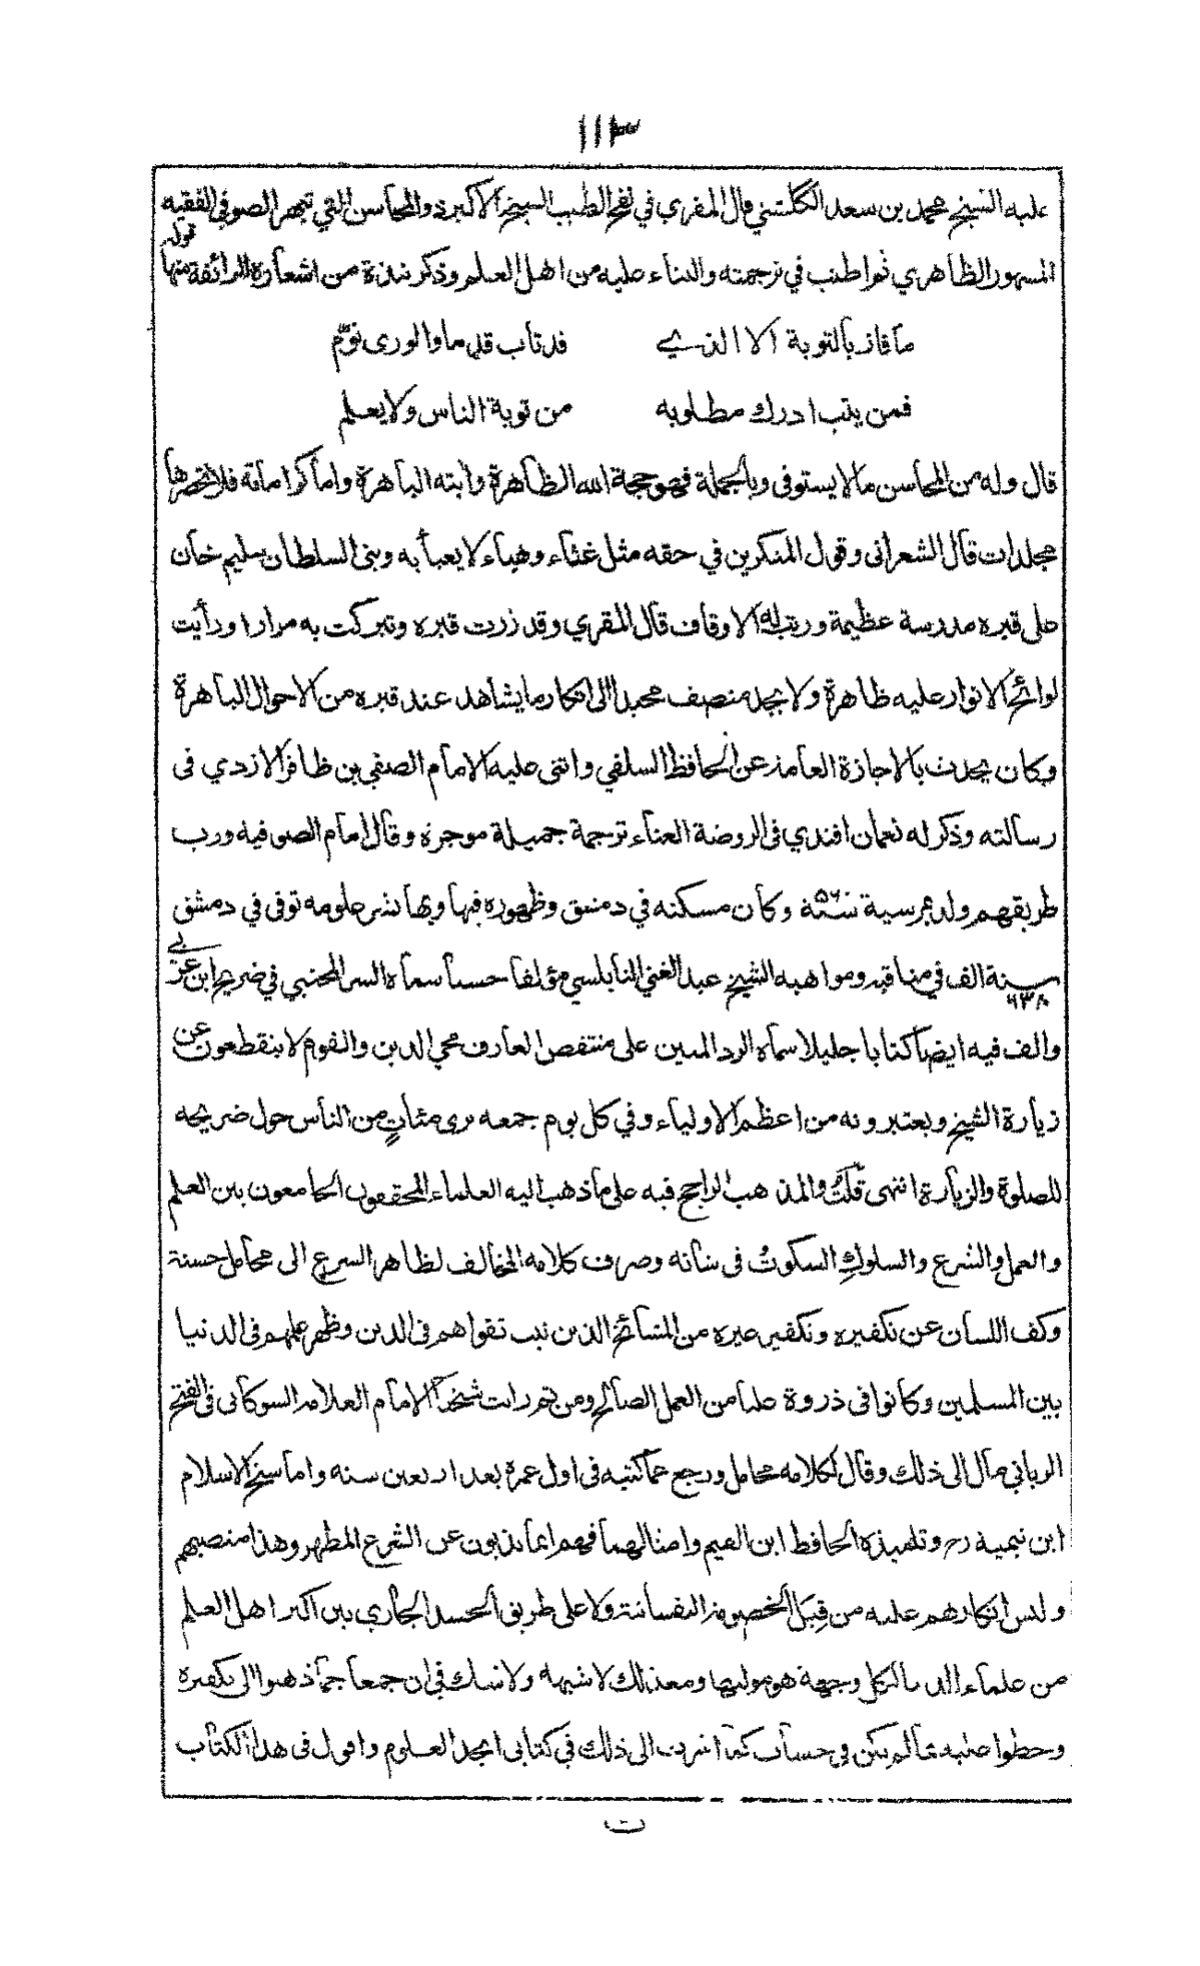 ١١٣
عليه الشيخ محمد بن سعد الكلشني قال المقري في نفح الطيب الشيخ الاكبر ذو المحاسن التي تبهر الصوفي الفقيه
المشهور الظاهري ثم اطنب في ترجمته والثناء عليه من اهل العلم وذكر نبذة من اشعاره الرائقة منها قوله
ما فاز بالتوبة الا الذي قد تاب قدما والورى نوّم
فمن يتب ادرك مطلوبه من توبة الناس ولا يعلم
قال وله من المحاسن ما لا يستوفى وبالجملة فهو حجة الله الظاهرة وآيته الباهرة واما كراماته فلا تحصرها
مجلدات قال الشعرانى وقول المنكرين في حقه مثل غثاء وهباء لا يعبأ به وبنى السلطان سليم خان
على قبره مدرسة عظيمة ورتب له الاوقاف قال المقري وقد زرت قبره وتبركت به مرارا ورأيت
لوائح الانوار عليه ظاهرة ولا يجد منصف محيدا الى انكار ما يشاهد عند قبره من الاحوال الباهرة
وكان يحدث بالاجازة العامة عن الحافظ السلفي واثنى عليه الامام الصفي بن ظافر الازدي فى
رسالته وذكر له نعمان افندي فى الروضة الغناء ترجمة جميلة موجزة وقال امام الصوفيه ورب
طريقهم ولد بمرسية سنة ٥٦٠ وكان مسكنه في دمشق وظهوره فيها وبها نشر علومه توفى في دمشق
سنة ٦٣٨ الف في مناقبه ومواهبه الشيخ عبد الغني النابلسي مؤلفا حسنا سماه السر المختبي في ضريح ابن عربي
والف فيه ايضا كتابا جليلا سماه الرد المتين على منتقص العارف محي الدين والقوم لا ينقطعون عن
زيارة الشيخ ويعتبرونه من اعظم الاولياء وفي كل يوم جمعه يرى مئات من الناس حول ضريحه
للصلوة والزيارة انتهى قلت والمذهب الراجح فيه على ما ذهب اليه العلماء المحققون الجامعون بين العلم
والعمل والشرع والسلوك السكوتُ فى شانه وصرف كلامه المخالف لظاهر الشرع الى محامل حسنة
وكف اللسان عن تكفيره وتكفير غيره من المشائخ الذين ثبت تقواهم فى الدين وظهر علمهم فى الدنيا
بين المسلمين وكانوا فى ذروة عليا من العمل الصالح ومن ثم رايت شيخنا الامام العلامة الشوكانى فى الفتح
الرباني مال الى ذلك وقال لكلامه محامل ورجع عما كتبه فى اول عمره بعد اربعين سنه واما شيخ الاسلام
ابن تيمية رح وتلميذه الحافظ ابن القيم وامثالهما فهم انما يذبون عن الشرع المطهر وهذا منصبهم
وليس انكارهم عليه من قِبَل الخصومة النفسانية ولا على طريق الحسد الجاري بين اكثر اهل العلم
من علماء الدنيا ولكل وجهة هو موليها ومع ذلك لا شبهة ولا شك في ان جمعا جما ذهبوا الى تكفيره
وحطوا عليه بما لم يكن في حساب كما اشرت الى ذلك في كتابى ابجد العلوم واقول فى هذا الكتاب
ت